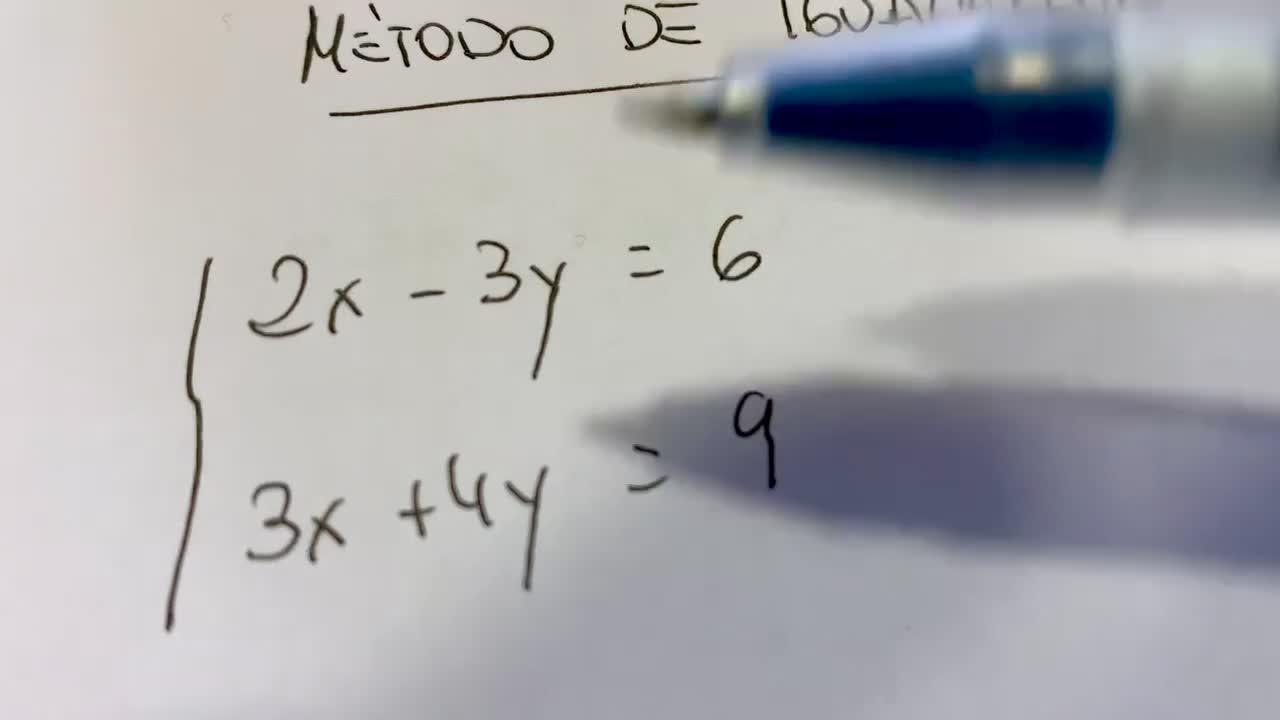 MÉTODO DE
2x - 3y = 6
3x + 4y = 9